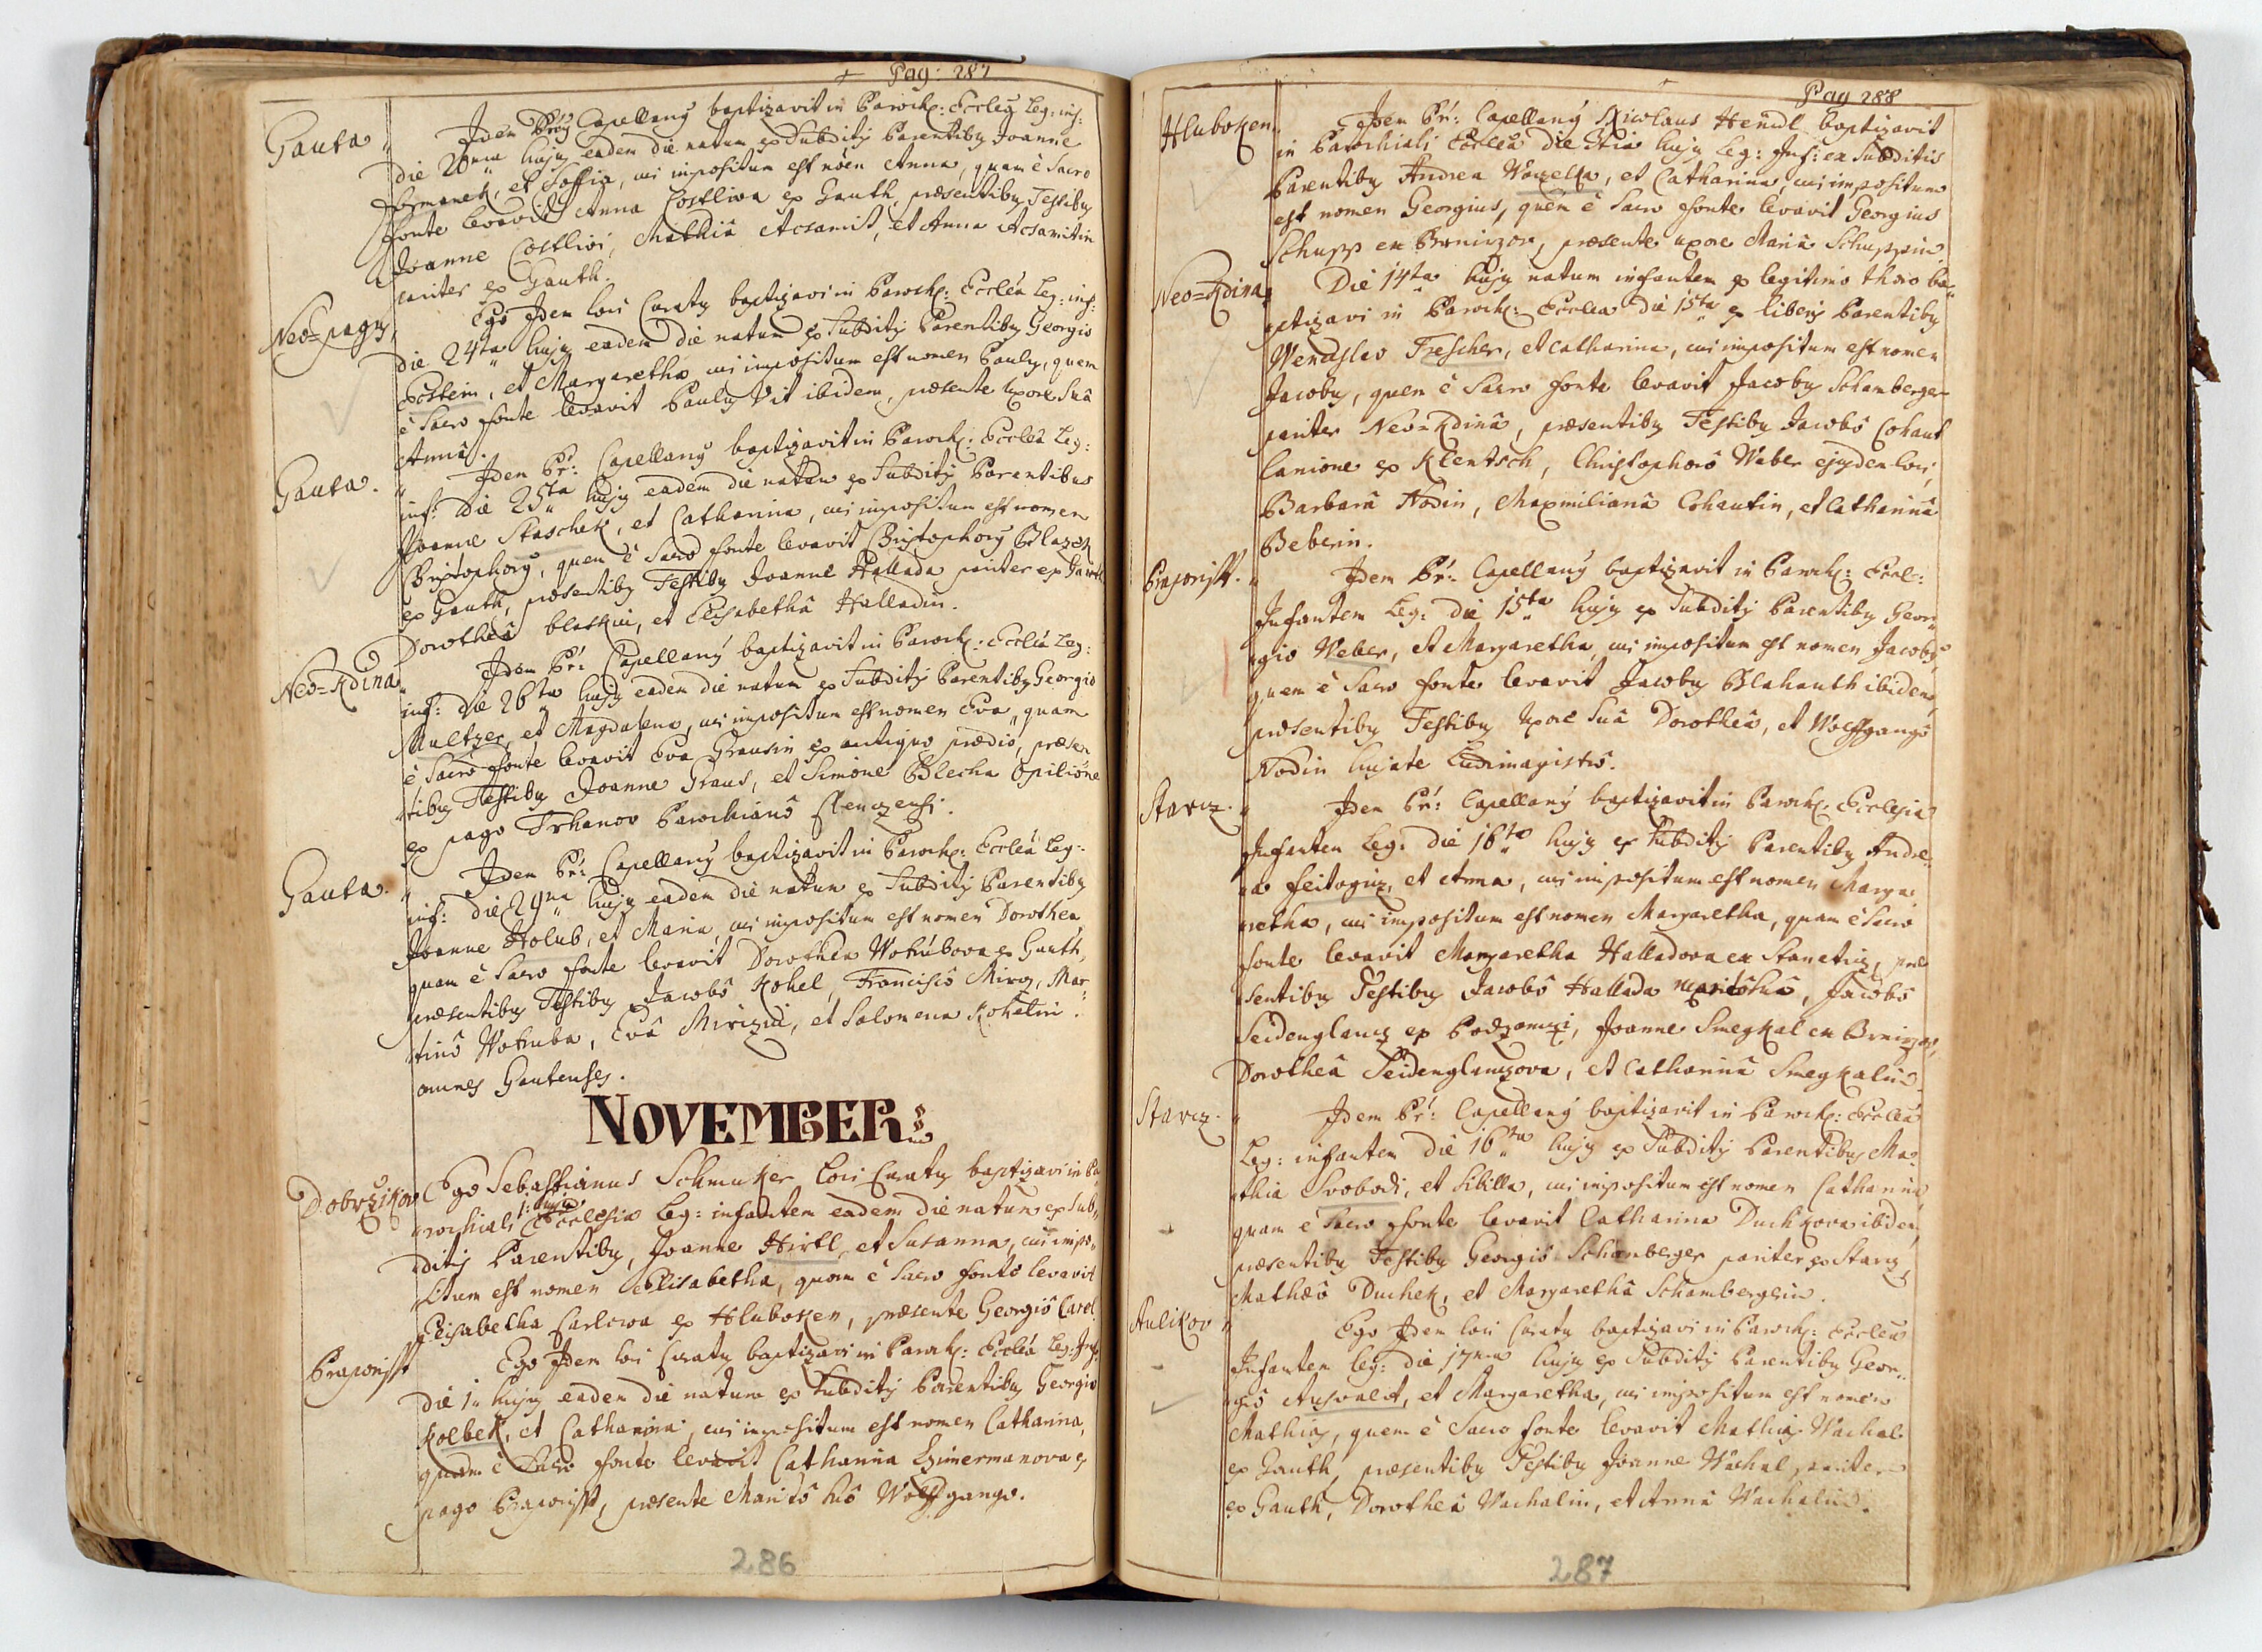 Pag: 287
Gauta
Idem Prój Capellanÿ baptizavit in Paroch: Ecclesia Leg: inf:
die 20ma hujq eadem die natum ex Subditÿ Parentibq Joanne
et Soffia, cui impositum est noen Anna, quam è Sacro
fonte levavit Anna Costliva ex Gauth, præsentibq Testibq
Joanne Costlivi, Mathiâ Acsamit, et Anna Acsamitin
pariter ex Gauth.
Neo=pagq
Ego Idem Loci Curatq baptizavi in Paroch: Eccleâ Leg: inf:
die 24ta hujq eadem die natum ex Subditÿ Parentibq Georgio
Eckstein, et Margaretha cui impositum est nomen Paulq, quem
è Sacro fonte levavit Paulq Vit ibidem, præsente Uxore Suâ
Annâ.
Gauta.
Idem Pr: Capellanÿ baptizavit in Paroch: Eccleâ Leg:
inf: die 25ta hujq eadem die natum ex Subditÿ Parentibus
Joanne Staschek, et Catharina, cui impositum est nomen
Christophorq, quem è Sacro fonte levavit Christophorq Blazek
ex Gauth, præsentibq Testibq Joanne Hallada pariter ex Gauth
Dorotheâ Blaskin, et Elisabethâ Halladin.
Neo=Kdina
Idem Pr: Capellanÿ baptizavit in Paroch: Eccleâ Leg:
inf: die 26ta hujq eadem die natum ex Subditÿ Parentibq Georgio
Multzer, et Magdalena, cui impositum est nomen Eva, quam
è Sacro fonte levavit Eva Grausin ex antiquo prædio, præsen
tibq Testibq Joanne Graus, et Simone Blecha Opilione
ex pago Trhanov Parochianô Klenczensi.
Gauta.
Idem Pr: Capellanÿ baptizavit in Paroch: Eccleâ Leg:
inf: die 29na hujq eadem die natum ex Subditÿ Parentibq
Joanne Holub, et Maria, cui impositum est nomen Dorothea,
quam è Sacro fonte levavit Dorothea Wotrubova ex Gauth,
præsentibq Testibq Jacobô Kohel, Franciscô Mirvz, Mar
tinô Wotruba, Evâ Mirvzin, et Salomena Kohelin.
omnes Gautenses.
NOVEMBER:
Dobrzikov
Ego Sebastianus Schmuker Loci Curatq baptizavi in Pa
rochiali Ecclesia Leg: infantem eadem die natum ex Sub
1: hujq
ditÿ Parentibq, Joanne Hirtl, et Susanna, cui impo
situm est nomen Elisabetha, quam è Sacro fonte levavit
Elisabetha Carlowa ex Hluboken, præsente Georgiô Carl
Praporisst
Ego Idem Loci Curatq baptizavi in Paroch: Eccleâ Leg: Inf:
die 1. hujq eadem die natum ex Subditÿ Parentibq Georgio
Kolbek, et Catharina, cui impositum est nomen Catharina,
quam è Sacro fonte levavit Catharina Czimermanova ex
pago Praporisst, præsente Maritô suô Wolffgango.
286
Pag 288
Hluboken.
Idem Pr: Capellanÿ Nicolaus Hendl baptizavit
in Parochiali Eccleâ die hujq Leg: Inf: ex Subditis
Parentibq Andrea Wauzelka, et Catharina, cui impositum
est nomen Georgius, quem è Sacro fonte levavit Georgius
Schupp ex Brnirzov, præsente uxore Mariâ Schuppin.
Neo=Kdina
Die 14ta hujq natum infantem ex legitimo thoro ba
ptizavi in Paroch: Ecclea die 15ta ex liberis Parentibq
Wenceslao Trescher, et Catharina, cui impositum est nomen
Jacobq, quem è Sacro fonte levavit Jacobq Schamberger
pariter Neo=Kdinâ, præsentibq Testibq Jacobô Cohaut
Lanione ex Klentsch, Christophorô Weber ejusdem loci,
Barbarâ Hodin, Maxmilianâ Cohautin, et Catharinâ
Beberin.
Praporisst.
Idem Pr: Capellanÿ baptizavit in Paroch: Eccl:
Infantem Leg: die 15ta hujq ex Subditÿ Parentibq Geor
gio Weber, et Margaretha, cui impositum est nomen Jacobq,
quem è Sacro fonte levavit Jacobq Blahauth ibidem,
præsentibq Testibq Uxore Suâ Dorotheâ, et Wolffgangô
Nodin hujate Ludimagistrô.
Starcz.
Idem Pr: Capellanÿ baptizavit in Paroch: Ecclesia
Infantem Leg: die 16ta hujq ex Subditÿ Parentibq Andre
a Feitogiz, et Anna, cui impositum est nomen Marga
retha, cui impositum est nomen Margaretha, quam è Sacro
fonte levavit Margaretha Halladova ex Stanetiz, præ
sentibq Testibq Jacobô Hallada maritô suô, Jacobô
Seidenglancz ex Podzamczi, Joanne Smegkal ex Brnirzov,
Dorotheâ Seidenglanczova, et Catharinâ Smegkalin.
Starcz.
Idem Pr: Capellanÿ baptizavit in Paroch: Eccleâ
Leg: infantem die 16ta hujq ex Subditÿ Parentibq Ma
thia Svobodi, et Sibilla, cui impositum est nomen Catharina,
quam è Sacro fonte levavit Catharina Duchkova ibidem,
præsentibq Testibq Georgiô Schamberger pariter ex Starcz,
Mathæô Duchek, et Margarethâ Schambergerin.
Aulikov
Ego Idem loci Curatq baptizavi in Paroch: Eccleâ
Infantem leg: die 17ma hujq ex Subditÿ Parentibq Geor
giô Ausvald, et Margaretha, cui impositum est nomen
Mathias, quem è Sacro fonte levavit Mathias Wachal
ex Gauth, præsentibq Testibq Joanne Wachal pariter
ex Gauth, Dorotheâ Wachalin, et Annâ Wachalin.
287